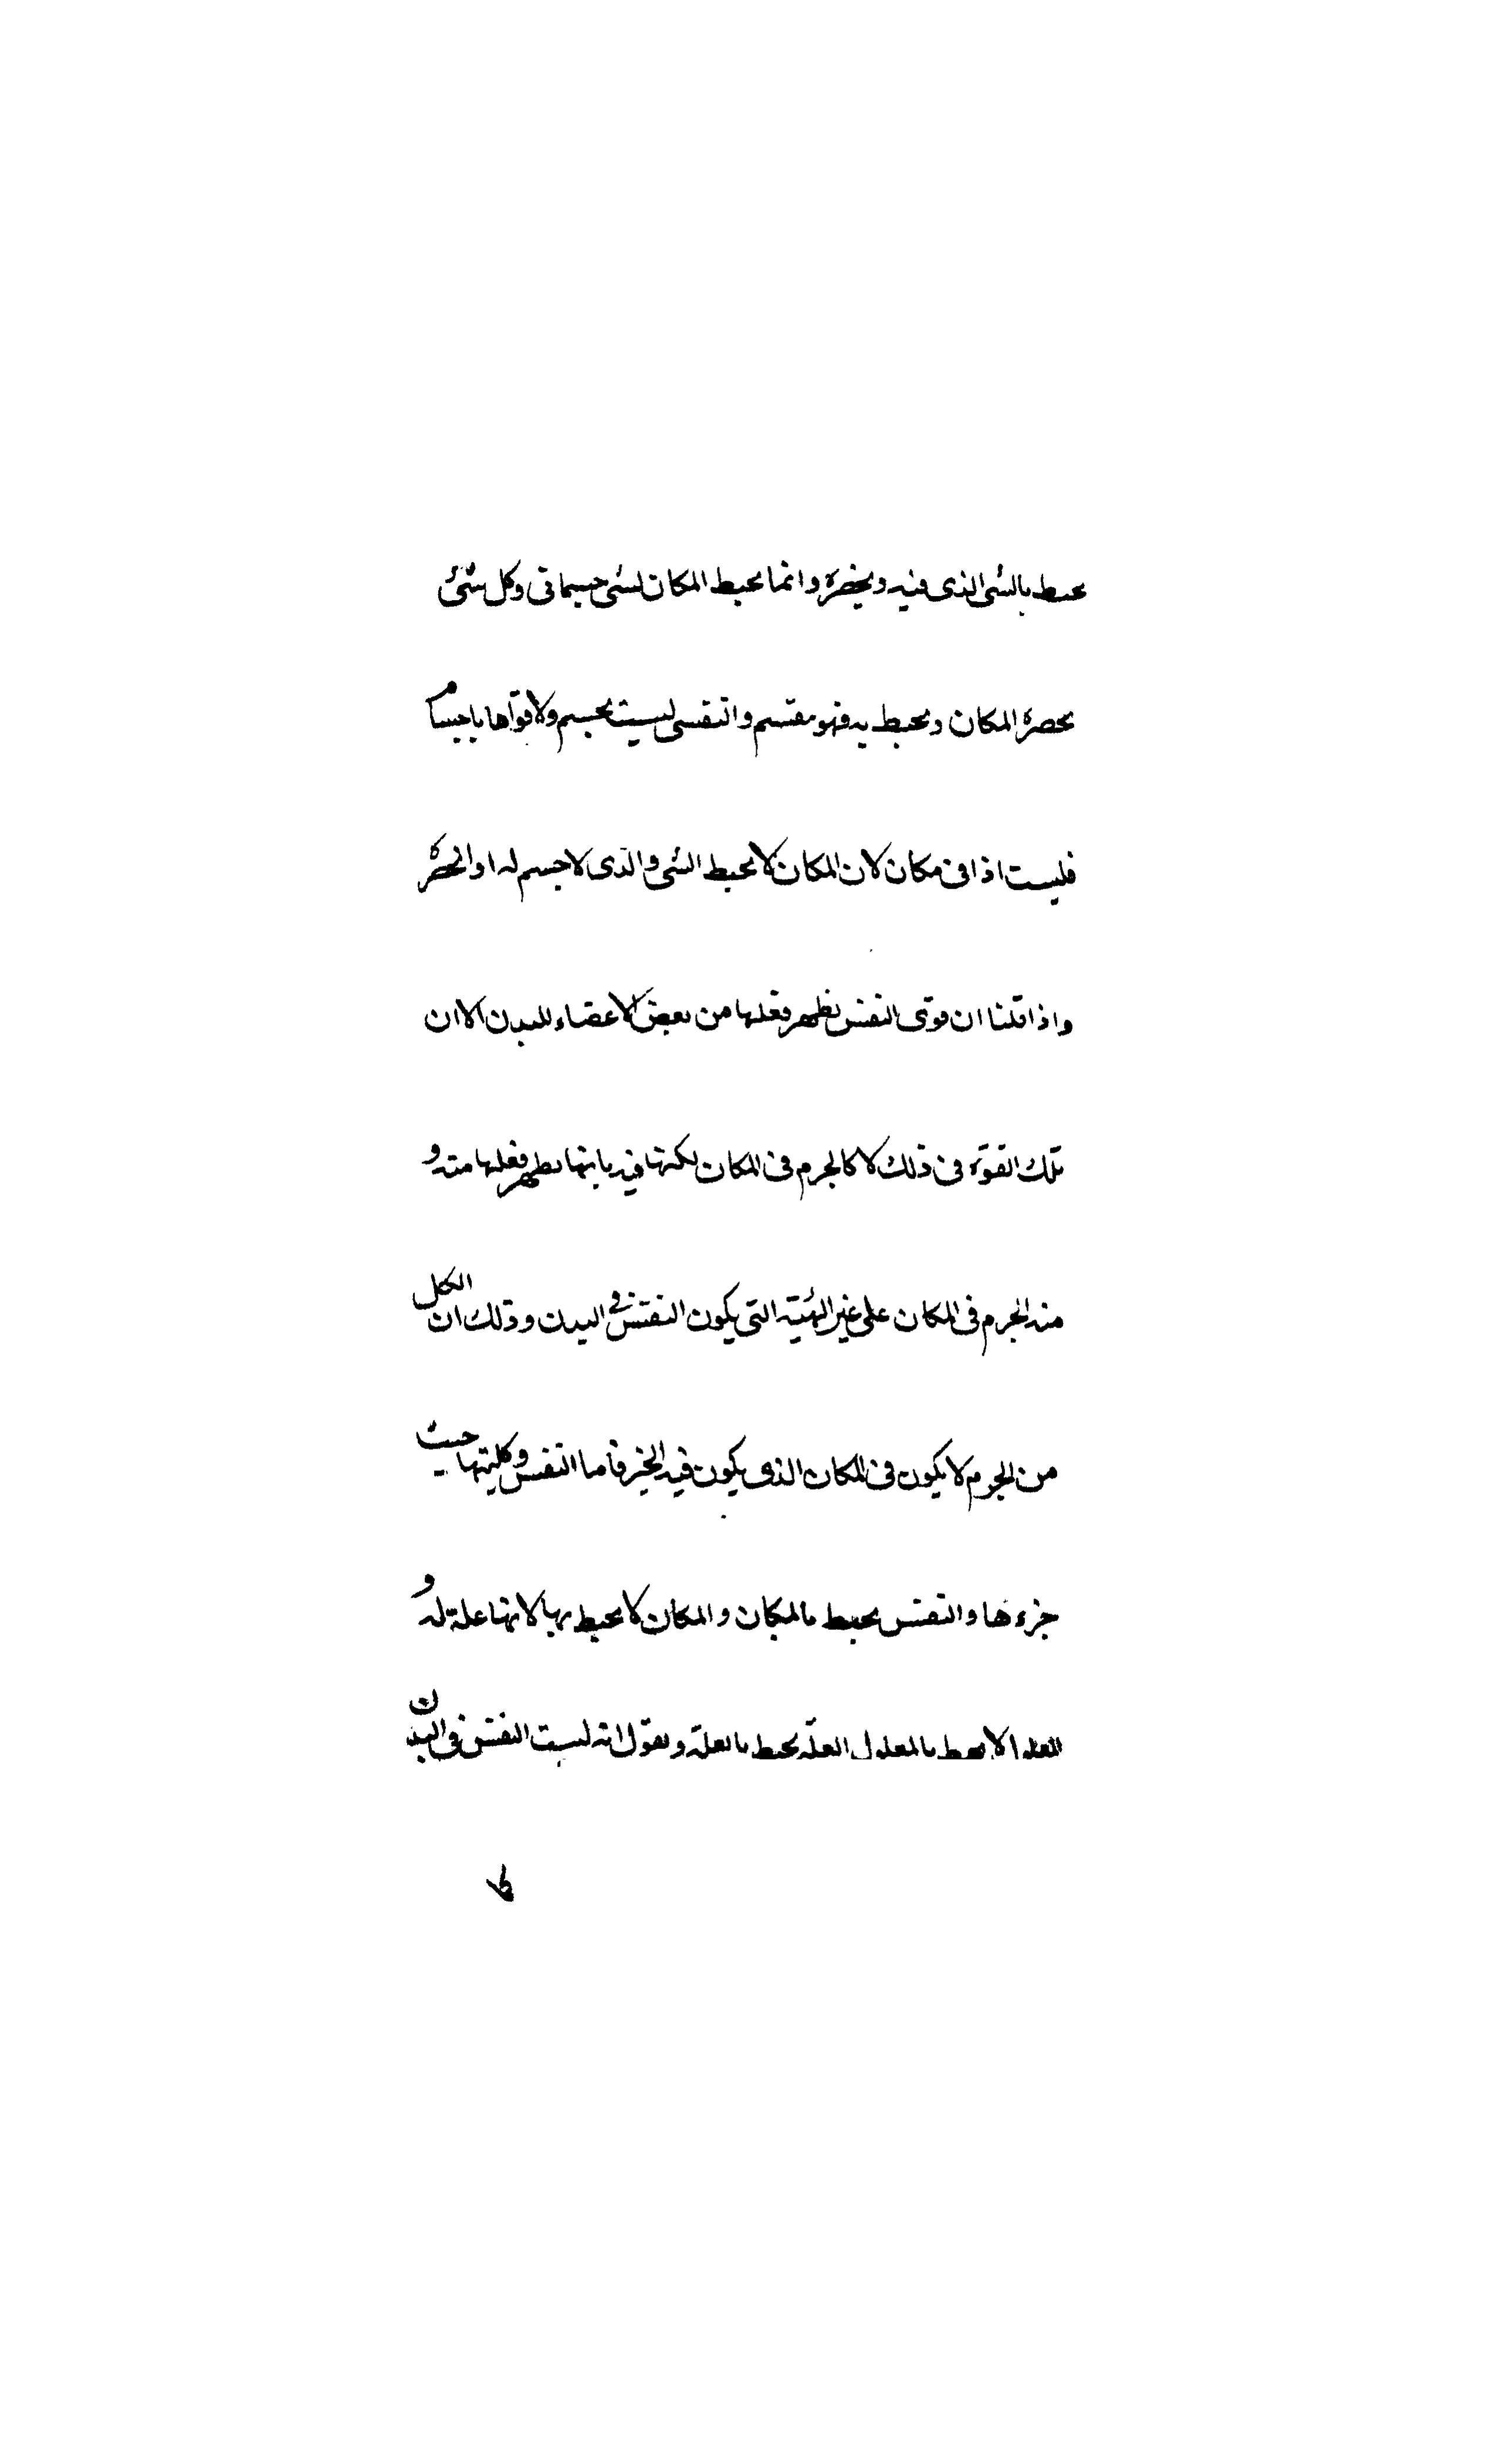 يحيط بالشى الذى فيه ويحضره وانما يحيط المكان لشى جسمانى وكل شئ
يحصره المكان ويحيط به فهو مقسم والنفس ليست بجسم ولا قواها باجسام
فليست اذا فى مكان لان المكان لا يحيط الشى والذى لا جسم له او الحصره
واذا قلنا ان قوى النفس يظهر فعلها من بعض الاعضاء للبدن الا ان
تلك القوة فى ذلك لا كالجرم فى المكان لكنها فيه بانها يظهر فعلها منه و
منه الجرم فى المكان على غير الهيئة التى يكون النفس فى البدن وذلك ان الكل
من الجرم لا يكون فى المكان الذى يكون فيه الخير فاما النفس وكليتها حيث
جزءها والنفس يحيط بالمكان والمكان لا يحيط بها لانها علة له و
العلة لا يحيط بالمعلول العلة يحيط بالعلة ونقول انه ليست النفس فى البدن
كا